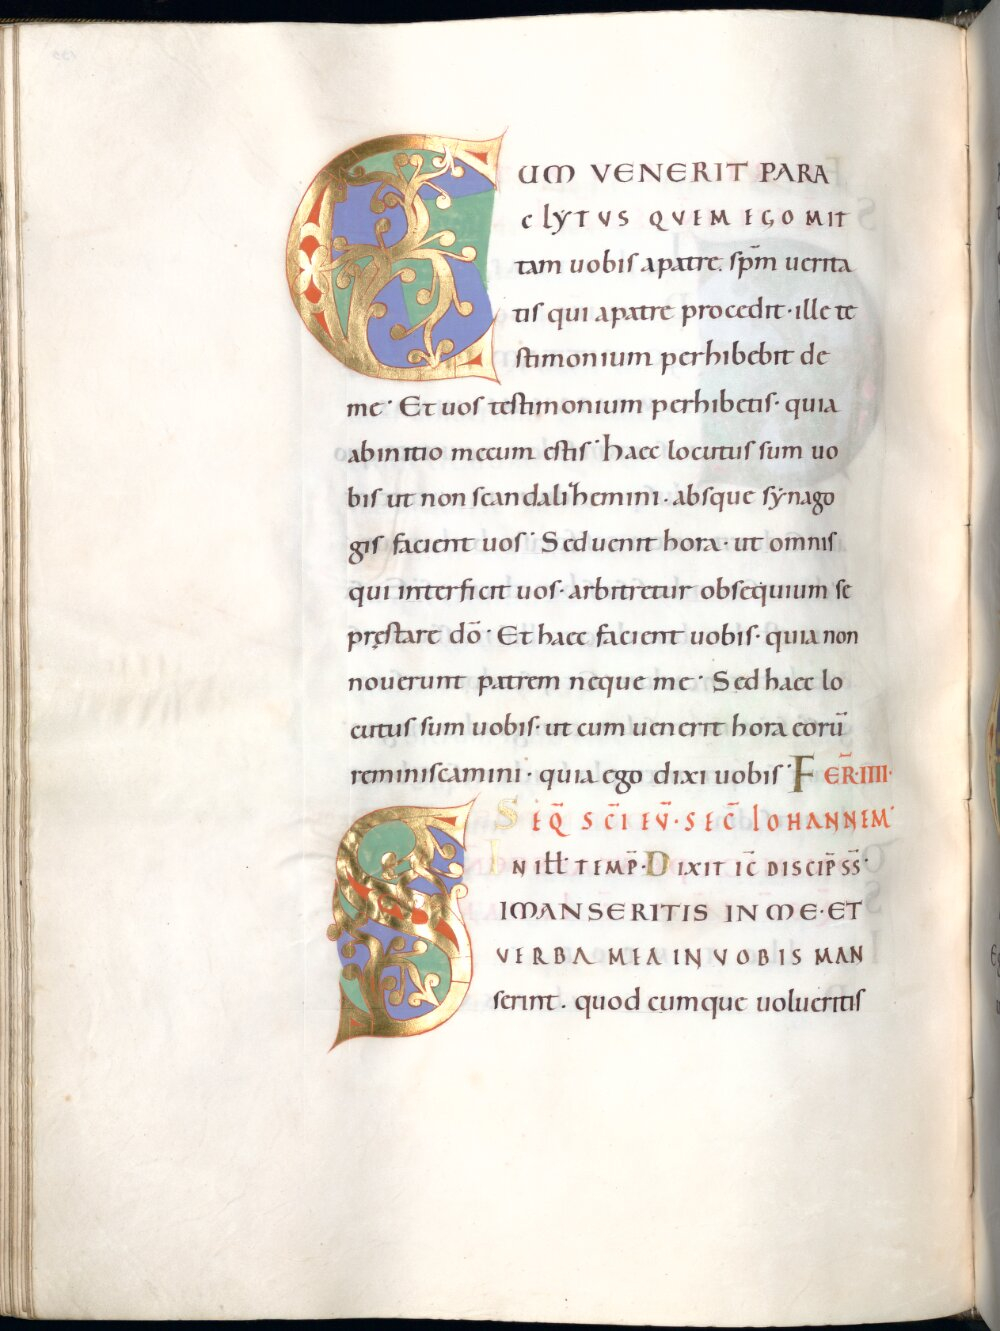 CUM VENERIT PARA
CLYTVS QVEM EGO MIT
tam uobis apatre. sp̄m uerita
tis qui apatre procedit· ille te
stimonium perhibebit de
me· Et uos testimonium perhibetis· quia
abinitio mecum estis· haec locutus sum uo
bis ut non scandalihemini· absque synago
gis facient uos· Sed uenit hora· ut omnis
qui interficit uos· arbitretur obsequium se
pręstare dō· Et haec facient uobis· quia non
nouerunt patrem neque me· Sed haec lo
cutus sum uobis· ut cum uenerit hora eorū
reminiscamini· quia ego dixi uobis· FER̄·IIII·
SEQ̄ SC̄I EV̄· SEC̄ IOHANNEM·
IN ILL̄ TEMP̄· DIXIT IC̄ DISCIP̄ SS̄·
SI MANSERITIS IN ME· ET
VERBA MEA IN VOBIS MAN
serint· quod cumque uolueritis